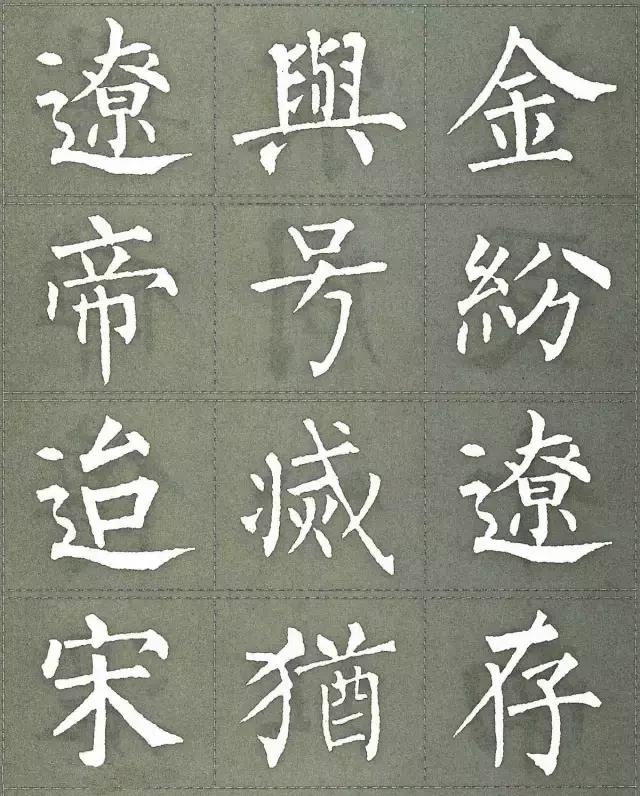 遼與金
帝号紛
迨滅遼
宋猶存